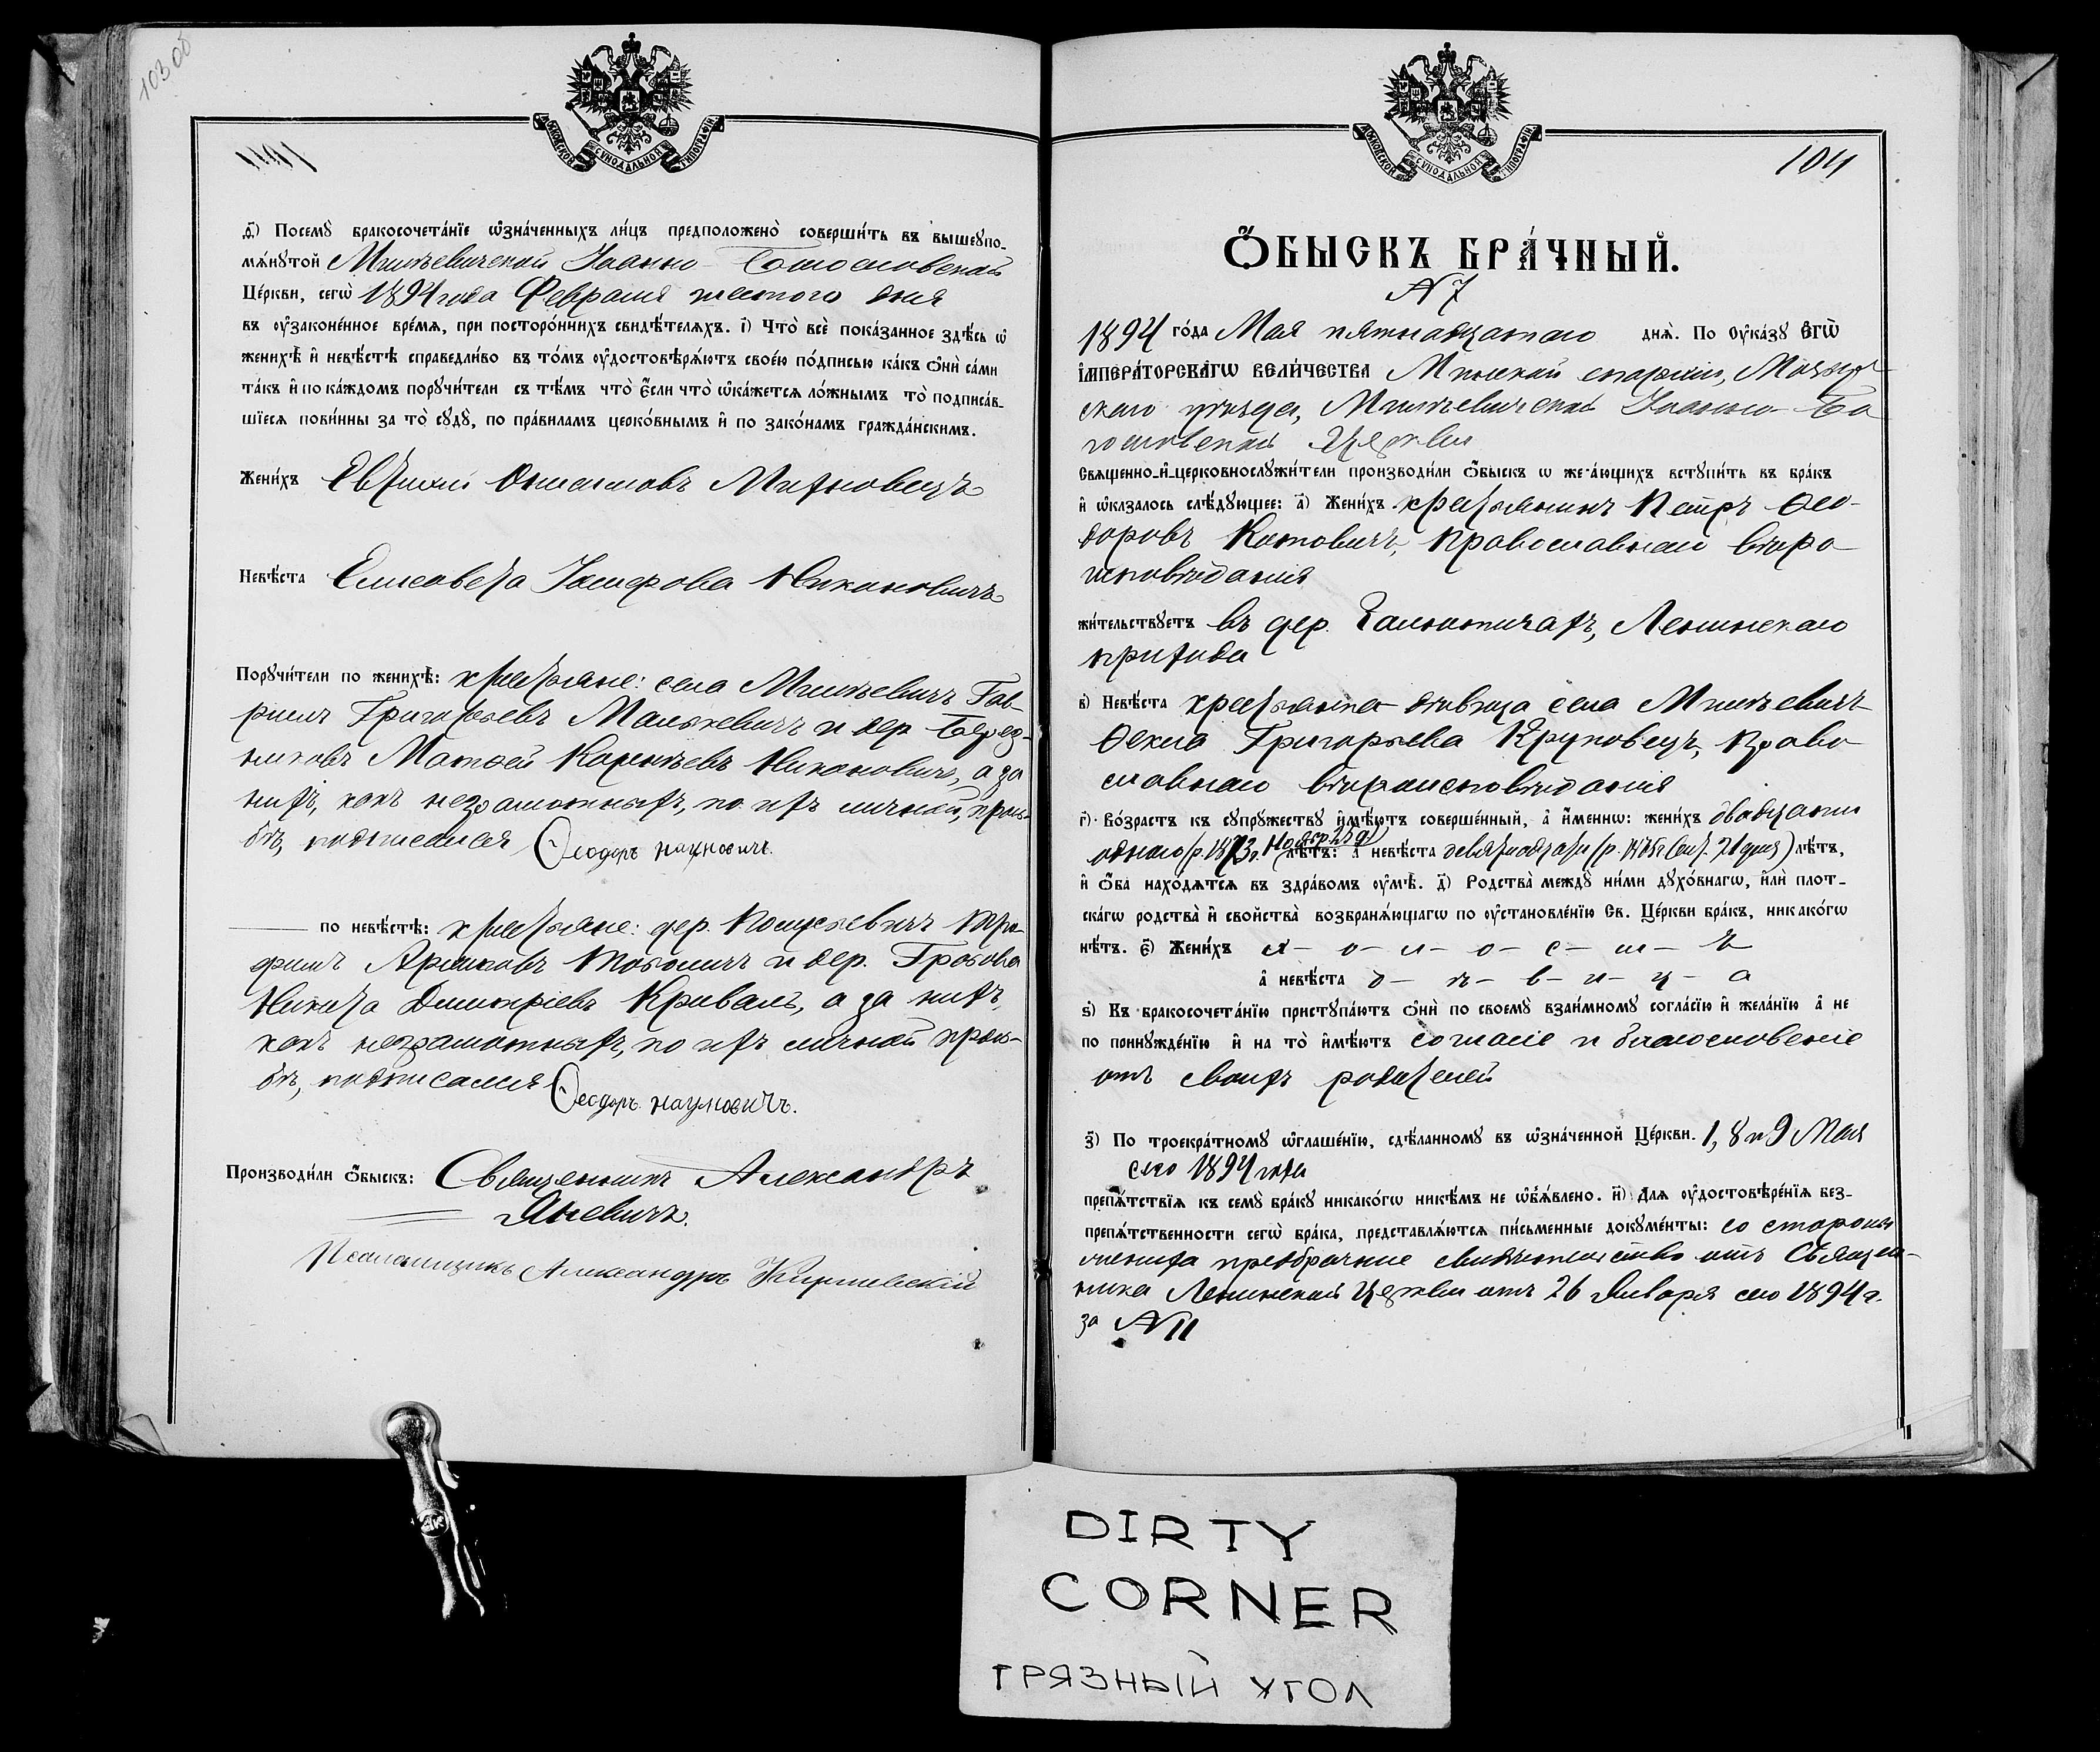 103 об
МОСКОВСКОЙ СУНОДАЛЬНОЙ ТИПОГРАФІИ
ѳ҃) Посемꙋ̀ бракосочета́нїе ѡ҆зна́ченныхъ ли́цъ предположено̀ соверши́ть въ вышеꙋпо-
мѧ́нꙋтой Милевичской Іоанно-Богословской
Це́ркви, сегѡ̀ 1894 года Февраля шестого дня
въ ᲂу҆законе́нное вре́мѧ, при посторо́ннихъ свидѣ́телѧхъ. і҃) Что̀ всѐ пока́занное здѣ́сь ѡ҆
женихѣ̀ и҆ невѣ́стѣ справедли́во въ то́мъ ᲂу҆достовѣрѧ́ютъ свое́ю по́дписью ка́къ ѻ҆нѝ са́ми
та́къ и҆ по ка́ждомъ порꙋчи́тели съ тѣ́мъ что̀ є҆́сли что̀ ѡ҆ка́жетсѧ ло́жнымъ то̀ подписа́в-
шїесѧ пови́нны за то̀ сꙋдꙋ̀, по пра́виламъ церко́внымъ и҆ по зако́намъ гражда́нскимъ.
Жени́хъ Евгений Михновецъ
Невѣ́ста Елисавета Никоновичъ
Порꙋчи́тели по женихѣ̀: крестьяне: села Милевичъ Гав-
риилъ Григорьевъ Малькевичъ и дер.
Матѳей Никоновичъ, а за
нихъ, какъ неграмотныхъ, по ихъ личной прось-
бѣ, подписался Ѳеодоръ Наумовичъ.
по невѣ́стѣ: крестьяне: дер. Тро-
фимъ и дер. Грабова
Никита Димитріевъ Криваль, а за нихъ,
какъ неграмотныхъ, по ихъ личной прось-
бѣ, подписался Ѳеодоръ Наумовичъ.
Производи́ли ѻ҆́быскъ: Священникъ Александръ
Яневичъ.
Псаломщикъ Александръ
МОСКОВСКОЙ СУНОДАЛЬНОЙ ТИПОГРАФІИ
104
Ѻ҆́БЫСКЪ БРА́ЧНЫЙ.
№ 7
1894 го́да Мая пятнадцатаго днѧ̀. По Оу҆ка́зꙋ Є҆ГѠ̀
І҆МПЕРА́ТОРСКАГѠ ВЕЛИ́ЧЕСТВА Минской епархіи, Мозыр-
скаго уѣзда, Милевичской Іоанно-Бо-
гословской Церкви
Свѧщенно-и҆-церковнослꙋжи́тели производи́ли ѻ҆́быскъ ѡ же а́ющихъ встꙋпи́ть въ бра́къ
и҆ ѡ҆казалось слѣ́дꙋющее: а҃) Жени́хъ крестьянинъ Петръ Ѳео-
доровъ Котовичъ, православнаго вѣро-
исповѣданія
жи́тельствꙋетъ въ дер. Ленинскаго
прихода
в҃) Невѣ́ста крестьянка дѣвица села Милевичъ
Ѳекла Григорьева Круповецъ, право-
славнаго вѣроисповѣданія
г҃) Во́зрастъ къ сꙋпрꙋжествꙋ и҆мѣ́ютъ соверше́нный, а҆ и҆́меннѡ: жени́хъ двадцати
одного (р. 1873 г. Ноября 25 д.) лѣ́тъ: а҆ невѣ́ста девятнадцати (р. 1875 Сент. 21 дня) лѣ́тъ,
и҆ ѻ҆́ба нахо́дѧтсѧ въ здра́вомъ ᲂу҆мѣ̀. д҃) Родства̀ междꙋ̀ ни́ми дꙋхо́внагѡ, и҆лѝ плот-
ска́гѡ родства̀ и҆ свойства̀ возбранѧ́ющагѡ по ᲂу҆становле́нїю Св. Це́ркви бра́къ, никако́гѡ
нѣ́тъ. є҃) Жени́хъ х-о-л-о-с-т-ъ
а҆ невѣ́ста д-ѣ-в-и-ц-а
ѕ҃) Къ бракосочета́нїю пристꙋпа́ютъ ѻ҆нѝ по своемꙋ̀ взаи́мномꙋ согла́сїю и҆ жела́нїю а҆ не
по принꙋжде́нїю и҆ на то̀ и҆мѣ́ютъ согласіе и благословеніе
отъ своихъ родителей
з҃) По троекра́тномꙋ ѡ҆глаше́нїю, сдѣ́ланномꙋ въ ѡ҆зна́ченной Це́ркви. 1, 8 и 9 Мая
сего 1894 года
препѧ́тствїѧ къ семꙋ̀ бра́кꙋ никако́гѡ никѣ́мъ не ѡ҆б̾ѧ́влено. и҃) Длѧ ᲂу҆достовѣре́нїѧ без-
препѧ́тственности сегѡ̀ бра́ка, представлѧ́ютсѧ пи́сьменные докꙋме́нты: со стороны
жениха предбрачное свидѣтельство отъ Священ-
ника Ленинской Церкви отъ 26 Января сего 1894 г.
за № 11
DIRTY
CORNER
ГРЯЗНЫЙ УГОЛ